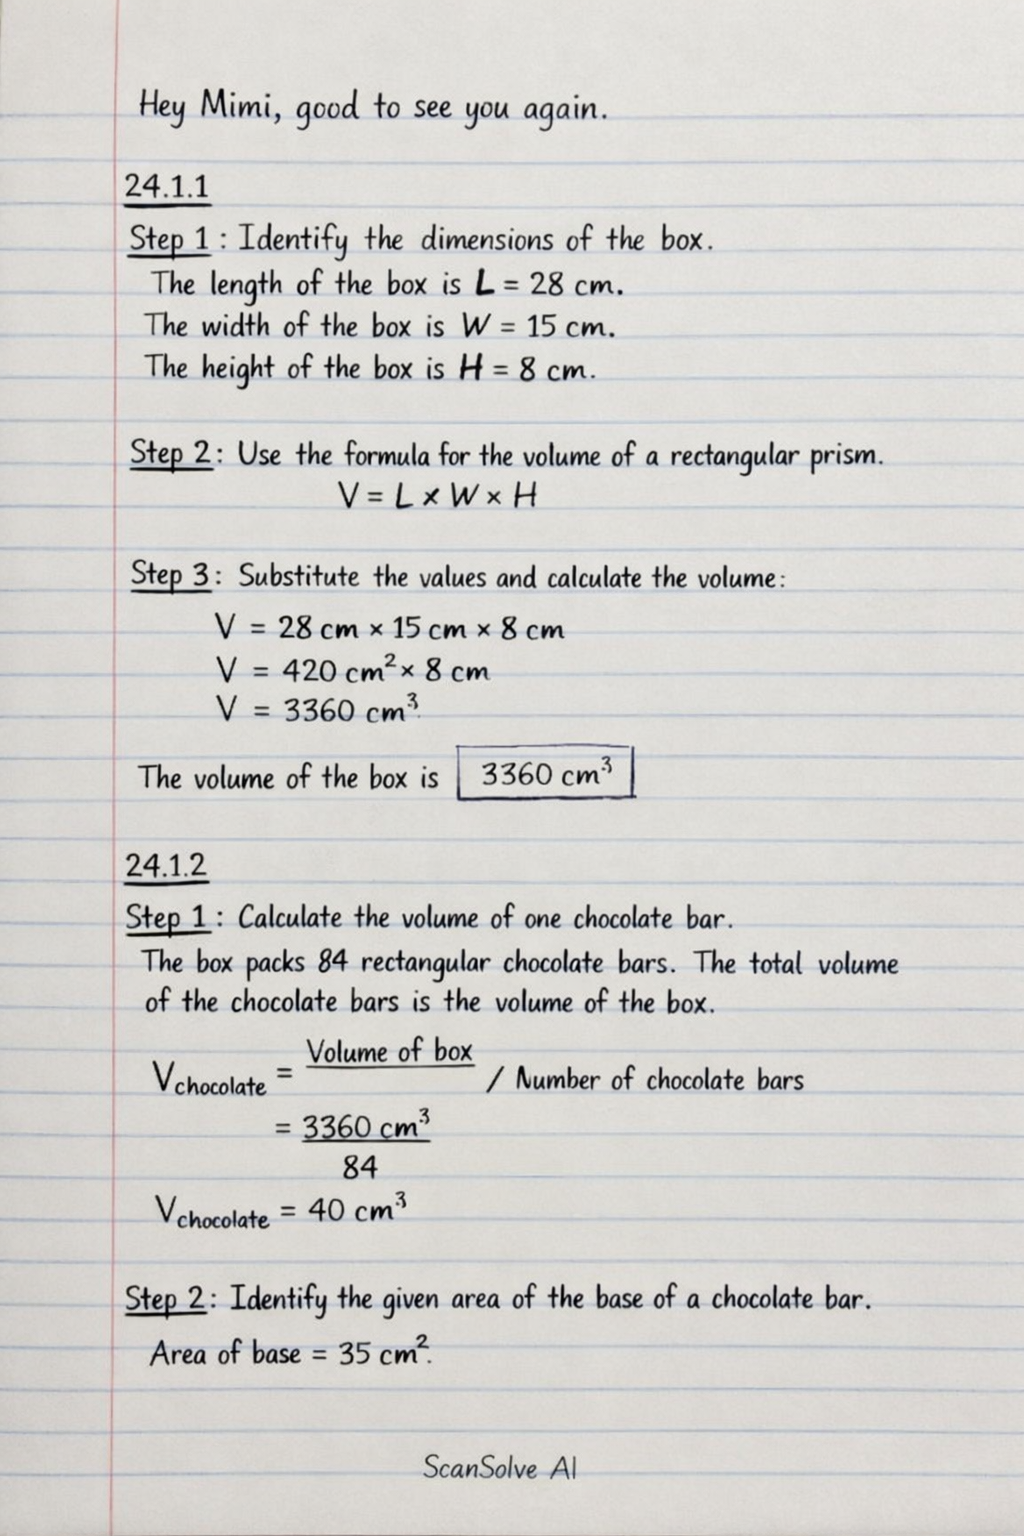 Hey Mimi, good to see you again.
24.1.1
Step 1 : Identify the dimensions of the box.
The length of the box is L = 28 cm.
The width of the box is W = 15 cm.
The height of the box is H = 8 cm.
Step 2 : Use the formula for the volume of a rectangular prism.
V = L × W × H
Step 3 : Substitute the values and calculate the volume:
V = 28 cm × 15 cm × 8 cm
V = 420 cm² × 8 cm
V = 3360 cm³
The volume of the box is 3360 cm³
24.1.2
Step 1 : Calculate the volume of one chocolate bar.
The box packs 84 rectangular chocolate bars. The total volume
of the chocolate bars is the volume of the box.
Vchocolate = Volume of box / Number of chocolate bars
= 3360 cm³
84
Vchocolate = 40 cm³
Step 2 : Identify the given area of the base of a chocolate bar.
Area of base = 35 cm².
ScanSolve AI